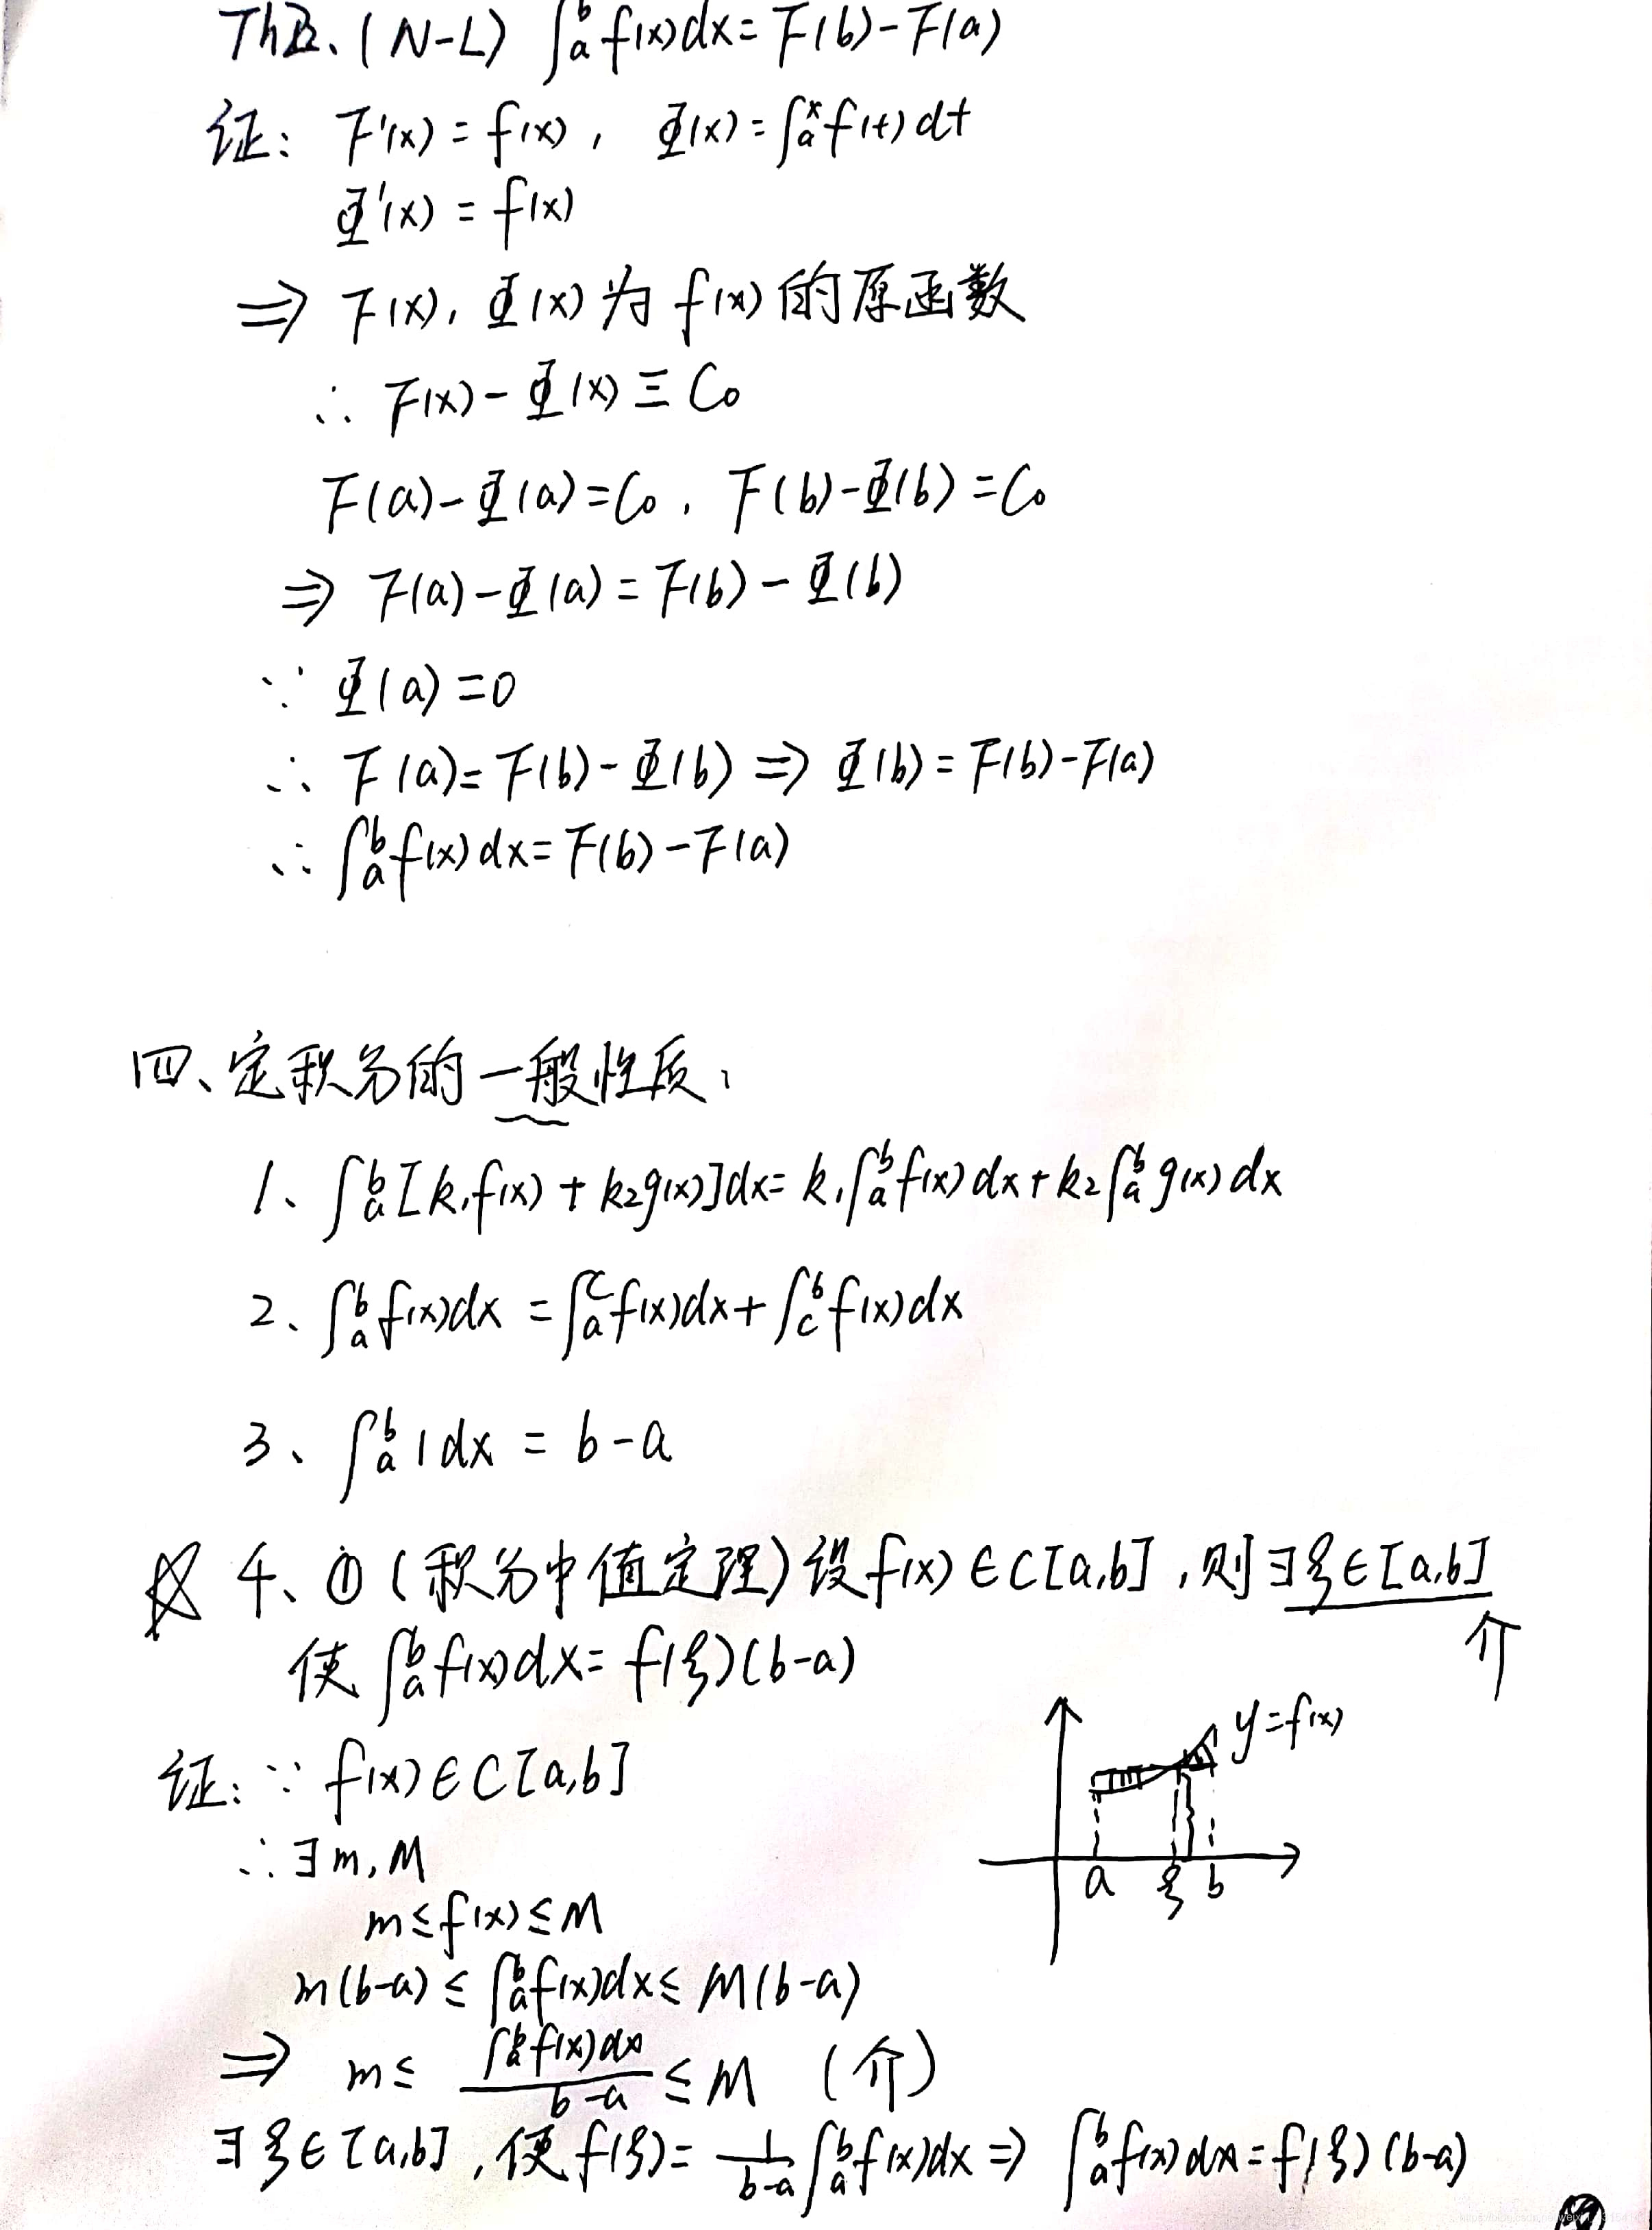 Th2、(N-L) ∫_a^b f(x)dx=F(b)-F(a)
证: F'(x)=f(x), Φ(x)=∫_a^x f(t)dt
Φ'(x)=f(x)
⇒ F(x), Φ(x)为f(x)的原函数
∴ F(x)-Φ(x)≡C₀
F(a)-Φ(a)=C₀, F(b)-Φ(b)=C₀
⇒ F(a)-Φ(a)=F(b)-Φ(b)
∵ Φ(a)=0
∴ F(a)=F(b)-Φ(b) ⇒ Φ(b)=F(b)-F(a)
∴ ∫_a^b f(x)dx=F(b)-F(a)
四、定积分的一般性质:
1、∫_a^b [k₁f(x)+k₂g(x)]dx=k₁∫_a^b f(x)dx+k₂∫_a^b g(x)dx
2、∫_a^b f(x)dx=∫_a^c f(x)dx+∫_c^b f(x)dx
3、∫_a^b 1dx=b-a
☆ 4、①(积分中值定理)设f(x)∈C[a,b],则∃ξ∈[a,b]
介
使∫_a^b f(x)dx=f(ξ)(b-a)
y=f(x)
a ξ b
证:∵ f(x)∈C[a,b]
∴∃m,M
m≤f(x)≤M
m(b-a)≤∫_a^b f(x)dx≤M(b-a)
⇒ m≤ \frac{∫_a^b f(x)dx}{b-a} ≤M (介)
∃ξ∈[a,b],使f(ξ)=\frac{1}{b-a}∫_a^b f(x)dx ⇒ ∫_a^b f(x)dx=f(ξ)(b-a)